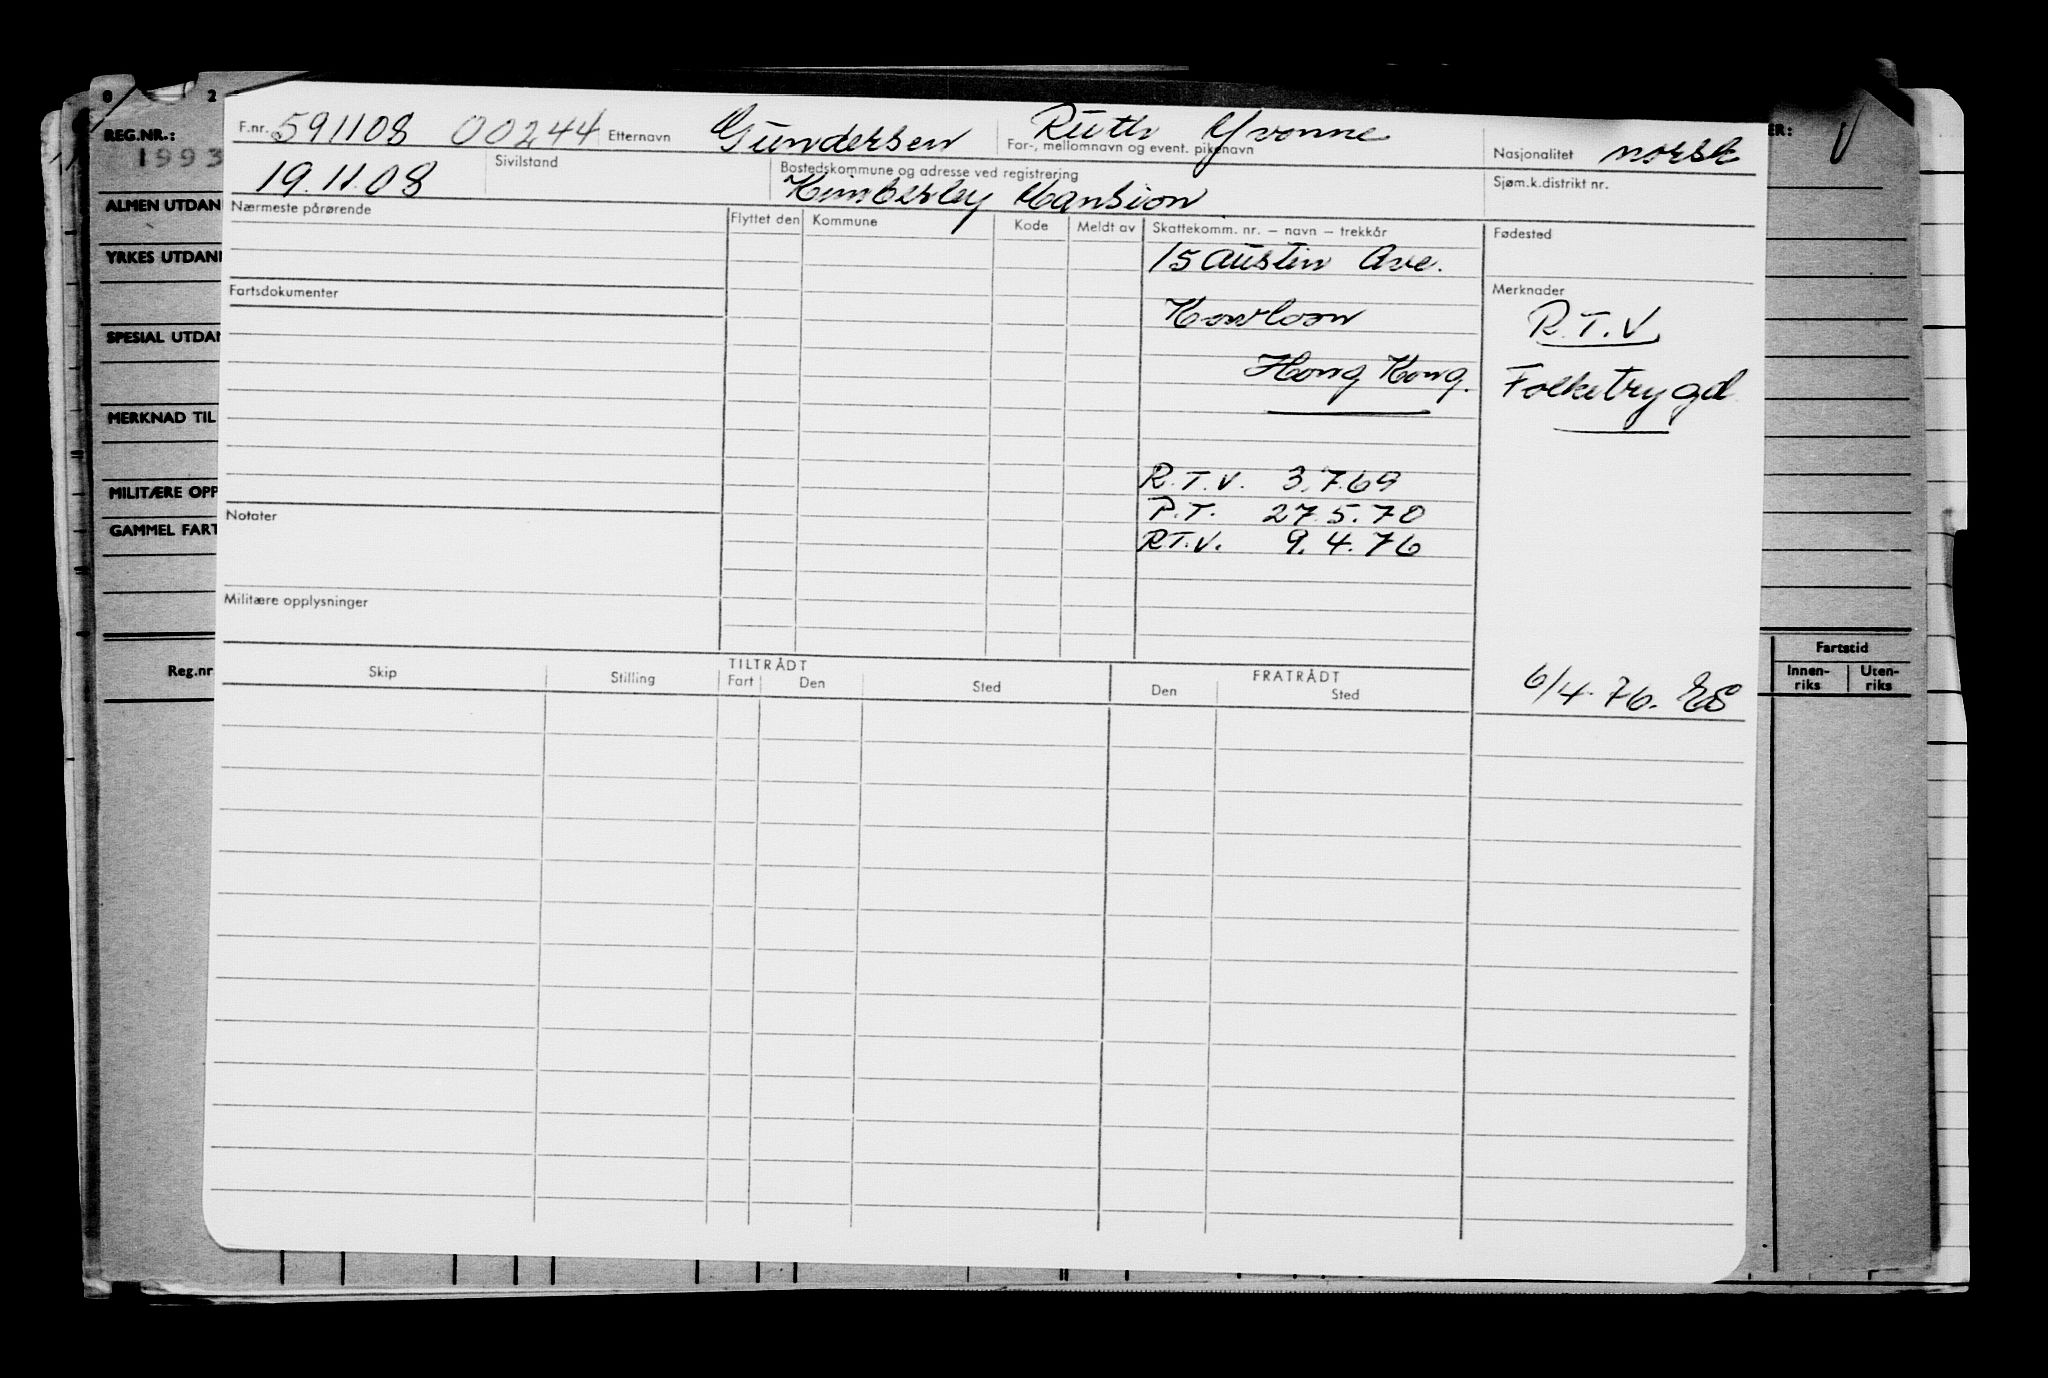 0 2
REG.NR.:
1993
ALMEN UTDAN
YRKES UTDANN
SPESIAL UTDAN
MERKNAD TIL
MILITÆRE OPP
GAMMEL FART
Reg.nr
ER: V
Fartstid
Innen-riks Uten-riks
F.nr. 591108 00244 Etternavn Gundersen Ruth Yvonne
For-, mellomnavn og event. pikenavn
Nasjonalitet norsk
19.11.08 Sivilstand Bostedskommune og adresse ved registrering
Kimberley Mansion
Sjøm.k.distrikt nr.
Nærmeste pårørende Flyttet den Kommune Kode Meldt av Skattekomm. nr. – navn – trekkår Fødested
15 Austin Ave.
Fartsdokumenter Merknader
Kowloon R.T.V.
Hong Kong. Folketrygd
R.T.V. 3.7.69
Notater P.T. 27.5.70
R.T.V. 9.4.76
Militære opplysninger
TILTRÅDT FRATRÅDT
Skip Stilling Fart Den Sted Den Sted
6/4-76. ES